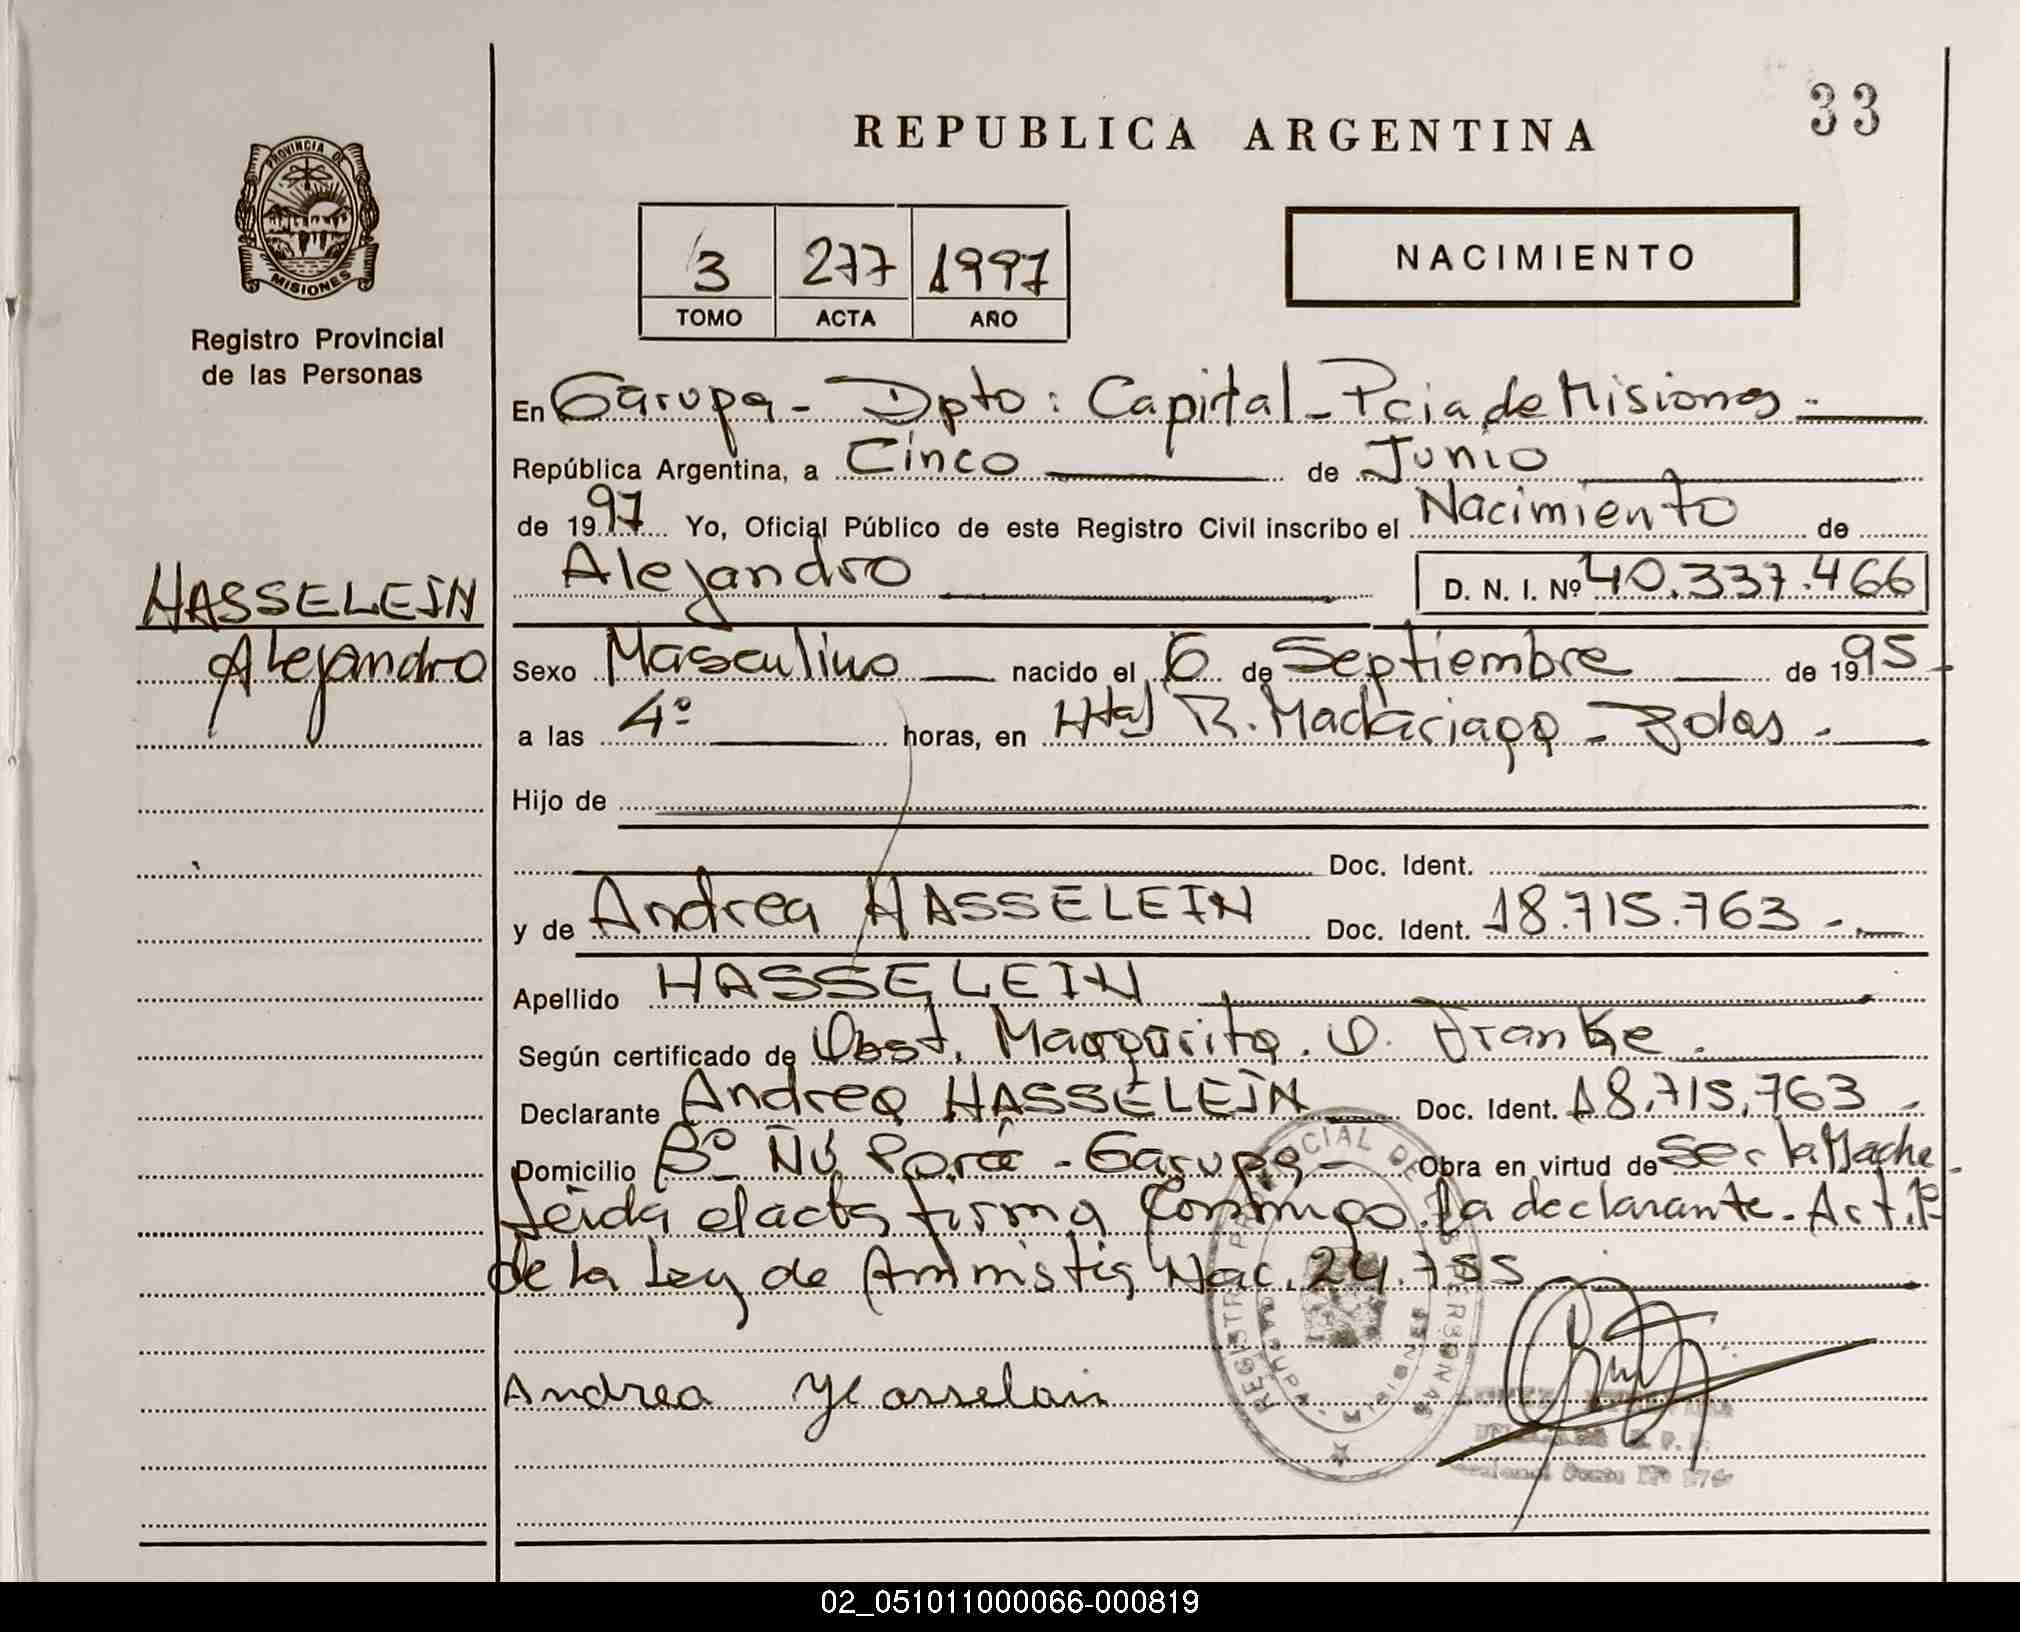 33
REPUBLICA ARGENTINA
PROVINCIA DE
MISIONES
Registro Provincial
de las Personas
3 277 1997
TOMO ACTA AÑO
NACIMIENTO
En Garupa - Dpto: Capital - Pcia de Misiones -
República Argentina, a Cinco de Junio
de 1997 Yo, Oficial Público de este Registro Civil inscribo el Nacimiento de
Alejandro D. N. I. Nº 40.337.466
HASSELEIN
Alejandro
Sexo Masculino nacido el 6 de Septiembre de 1995
a las 4º horas, en Htal R. Madariaga -
Hijo de
Doc. Ident.
y de Andrea HASSELEIN Doc. Ident. 18.715.763 -
Apellido HASSELEIN
Según certificado de Obst. Margarita. O. Franke.
Declarante Andrea HASSELEIN Doc. Ident. 18.715.763 -
Domicilio Bº Ñú Porá - Garupa - Obra en virtud de Ser la Madre -
Leida el acta firma Conmigo la declarante. Art. 1º
de la Ley de Amnistia Nac. 24.755
Andrea Hasselein
REGISTRO PROVINCIAL DE LAS PERSONAS
MISIONES
02_051011000066-000819